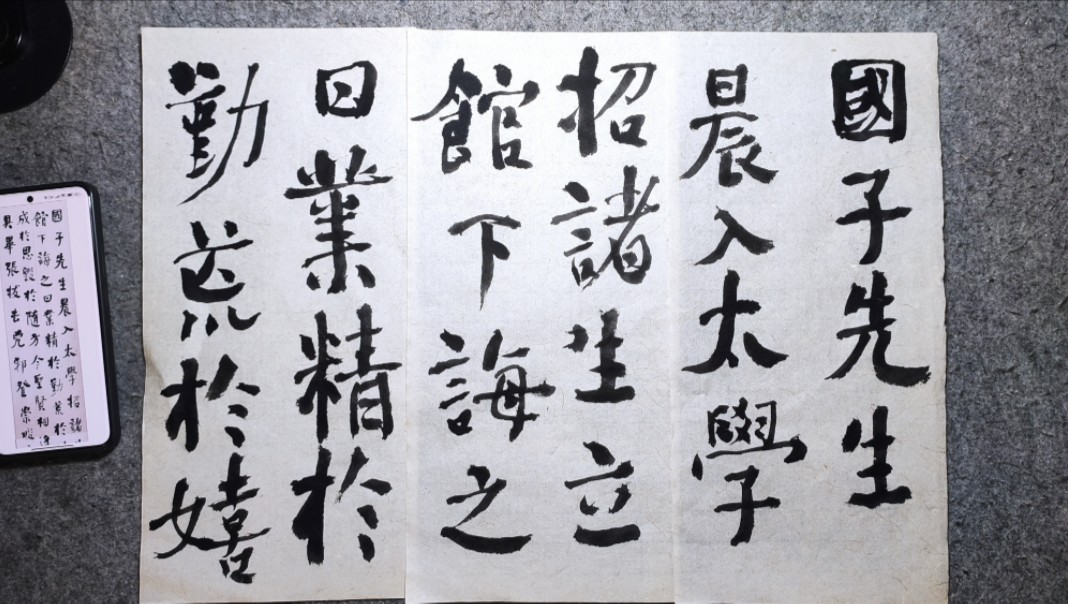 國子先生
晨入太學
招諸生立
館下誨之
曰業精於
勤荒於嬉
國子先生晨入太學招諸
館下誨之曰業精於勤荒於
成於思毀於隨方今聖賢相逢
具畢張拔去兇邪登崇畯